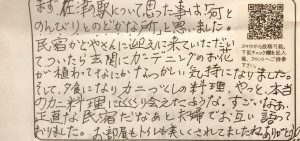 まず佐津の駅について思った事は何と
のんびりとのどかな所と思いました。
民宿かどやさんに迎えに来ていただい
てついたら玄関にガーデニングのお花
が植わってなにかなつかしい気持になりました。
そして、夕食になりカニづくしの料理、やっと、本当
のカニ料理にめぐり会えたような、すごいなぁ、
正直な民宿だなぁと夫婦でお互い語って
おりました。お部屋もトイレも美しくされてましたね。ありがとう
スマホから投稿可能。
下記チェック欄を記入
後、フロントへご持参
下さい。